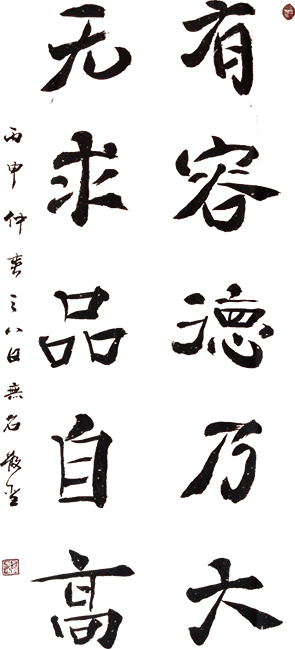 有容德乃大
无求品自高
丙申仲春之八日無名